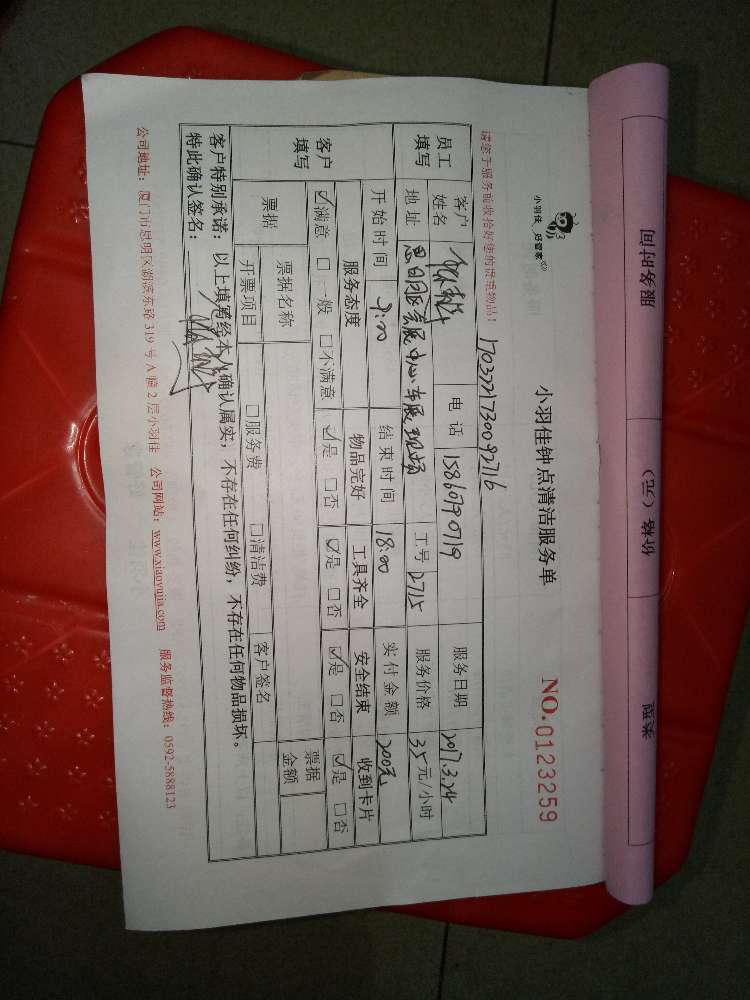 服务时间
价格（元）
小羽佳 好管家
小羽佳钟点清洁服务单
NO.0123259
请您于服务前收拾好您的贵重物品！
1703221730092716
员工填写
客户姓名
电话 15860790719
服务日期 2017.3.24
地址 思明区会展中心车展现场
工号 2715
服务价格 35元/小时
客户填写
开始时间 9:00
结束时间 18:00
实付金额 200元
服务态度 物品完好 工具齐全 安全结束 收到卡片
☑满意 □一般 □不满意 ☑是 □否 ☑是 □否 ☑是 □否 ☑是 □否
票据 票据名称 票据金额
开票项目 □服务费 □清洁费 客户签名
客户特别承诺：以上填写经本人确认属实，不存在任何纠纷，不存在任何物品损坏。
特此确认签名：
公司地址：厦门市思明区湖滨东路319号A幢2层小羽佳 公司网站：www.xiaoyujia.com 服务监督热线：0592-5888123